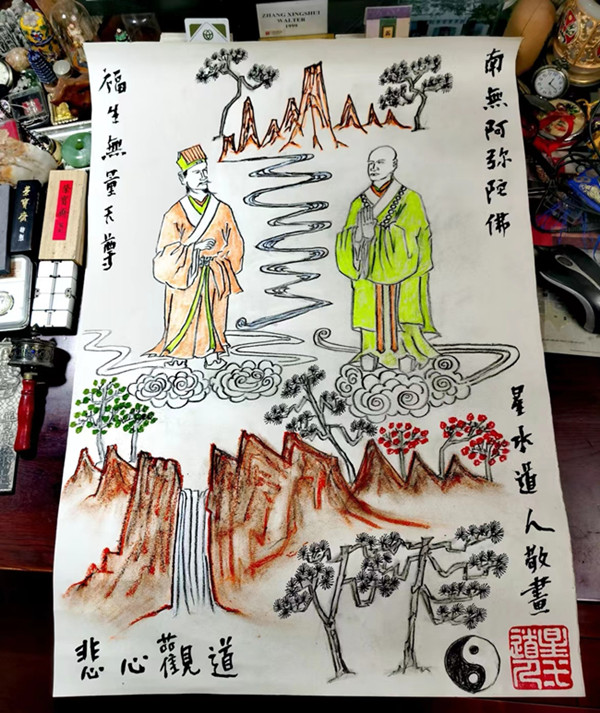 ZHANG XINGSHUI
WALTER
福生無量天尊
南無阿弥陀佛
星水道人敬畫
悲心觀道
星水道人